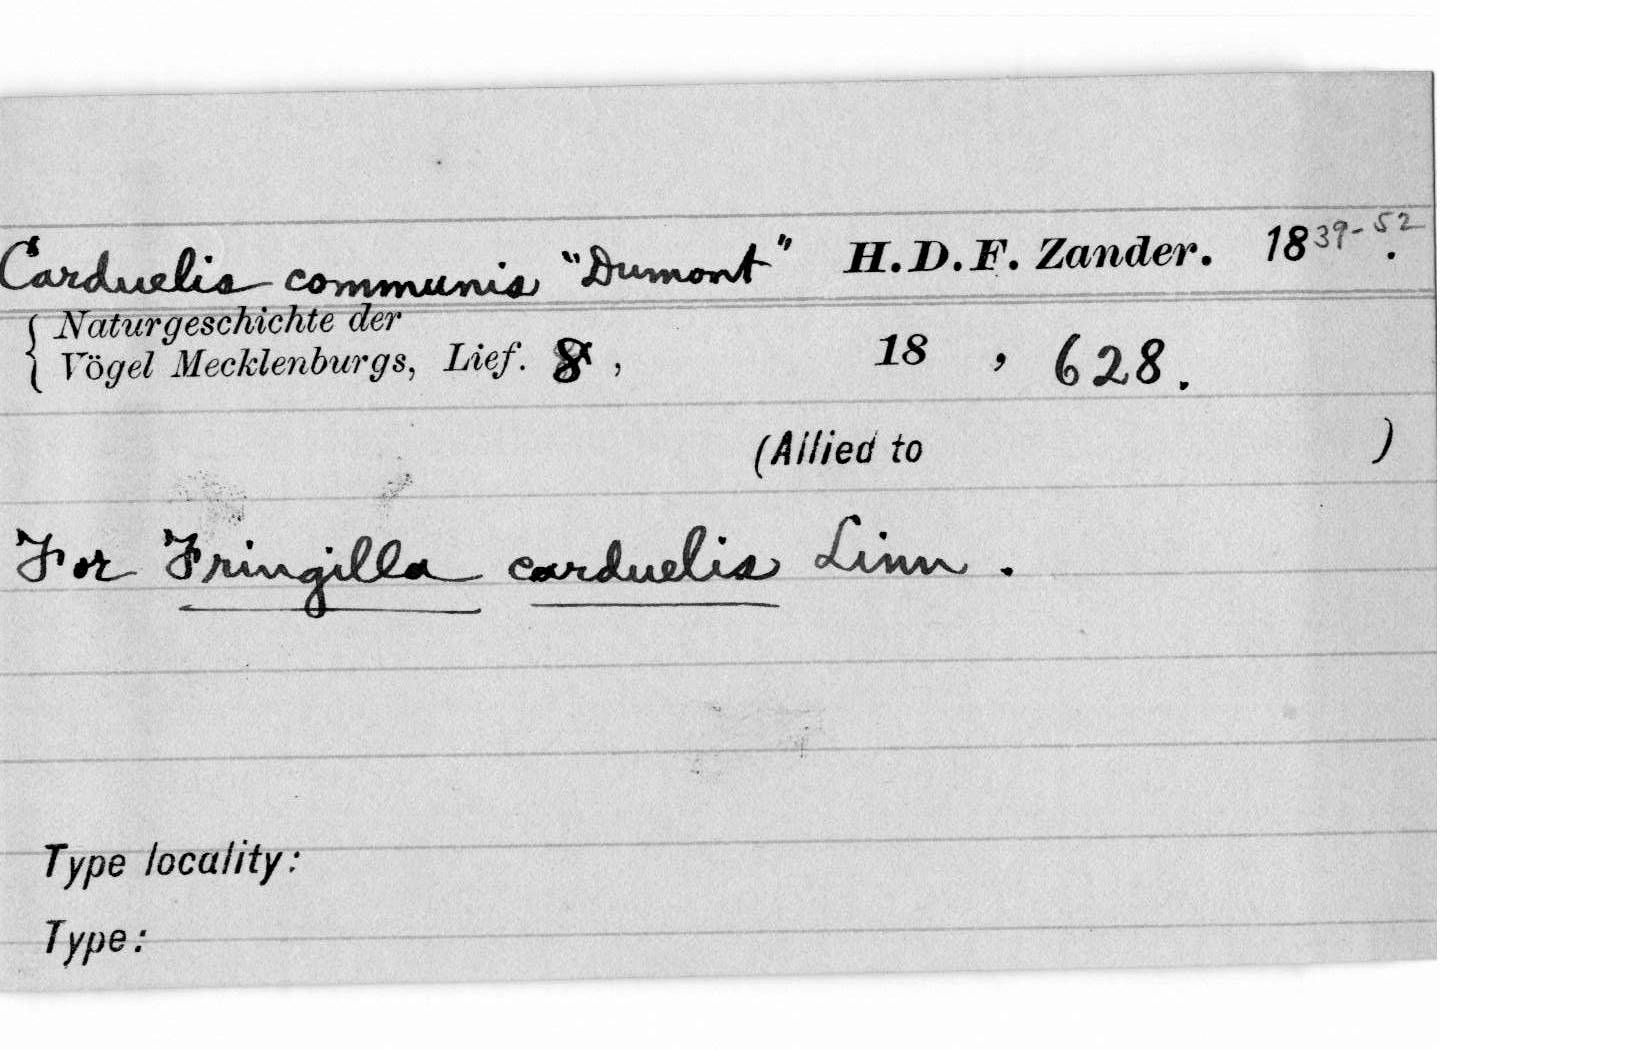 Carduelis communis "Dumont" H.D.F. Zander. 1839-52.
Naturgeschichte der
Vögel Mecklenburgs, Lief. 8, 18 , 628.
(Allied to )
For Fringilla carduelis Linn.
Type locality:
Type: